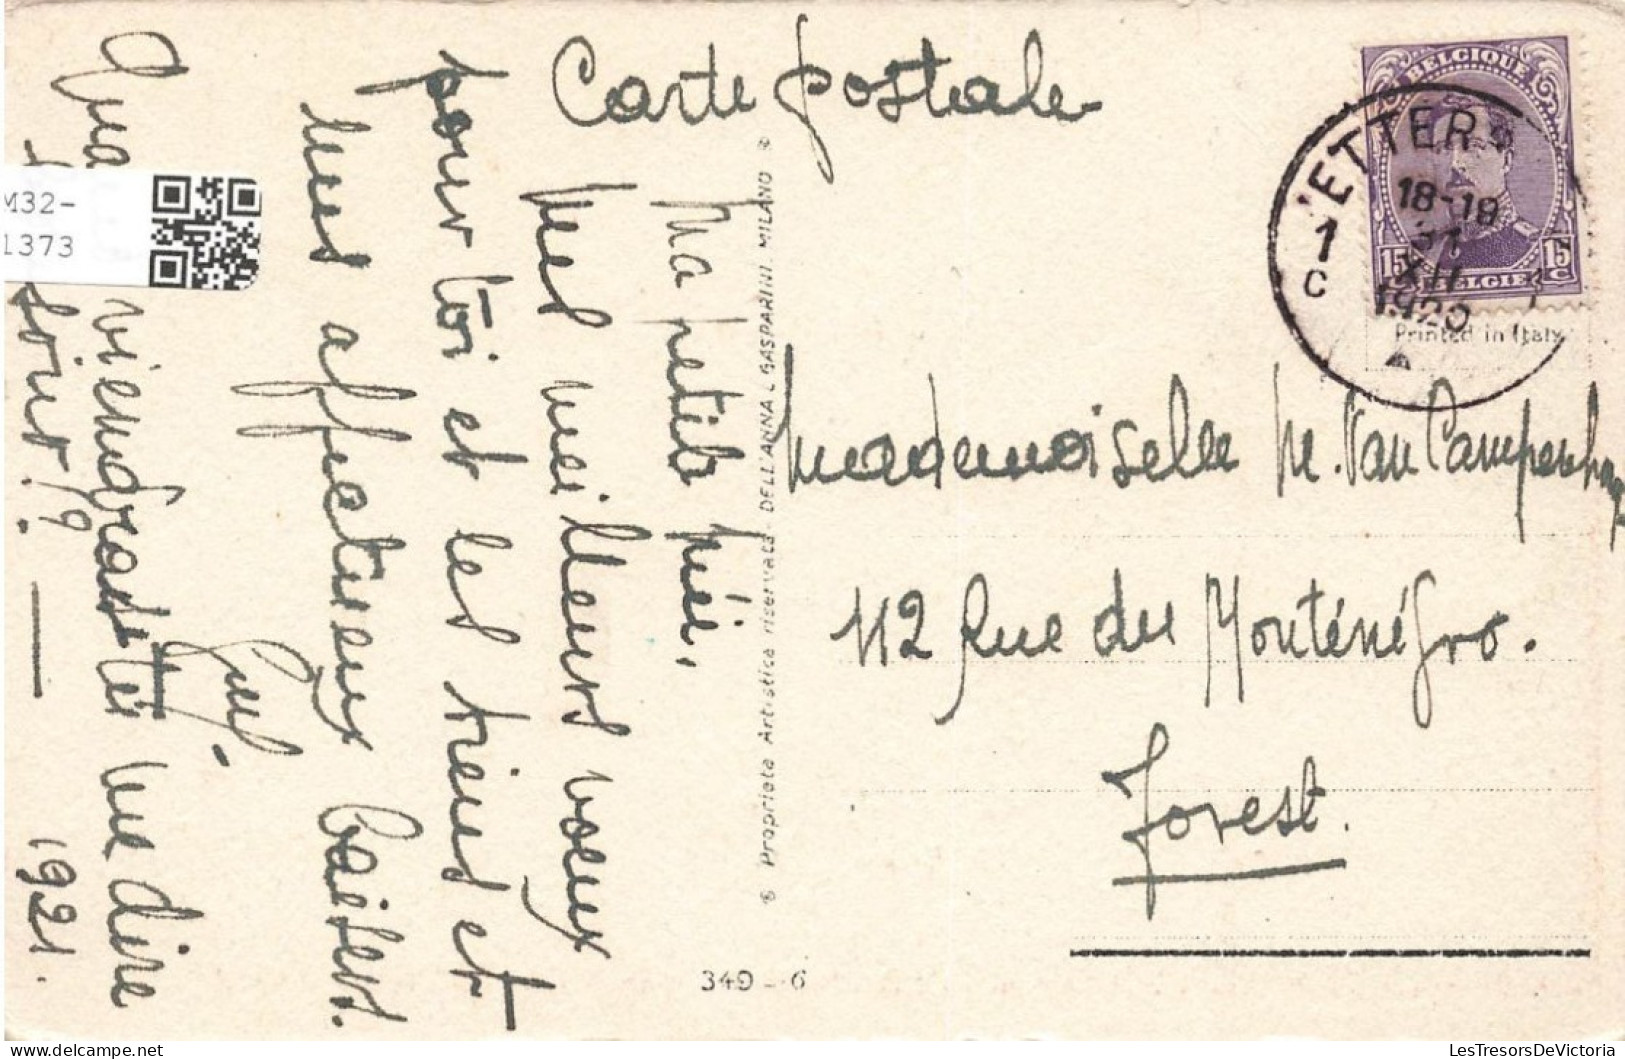 Carte postale
BELGIQUE
15 15
BELGIË
ETTER
18-19
31
XII
1920
1
C
Printed in Italy
Mademoiselle M. Van Campenhout
112 Rue du Monténégro.
Forest.
Ma petite Mié.
Mes meilleurs voeux
pour toi et les tiens et
mes affectueux baisers.
Quand viendras-tu me dire
bonsoir!?
1921.
® Proprieta Artistica riservata - DELL'ANNA & GASPARINI. MILANO ®
349 - 6
M32-
1373
LesTresorsDeVictoria